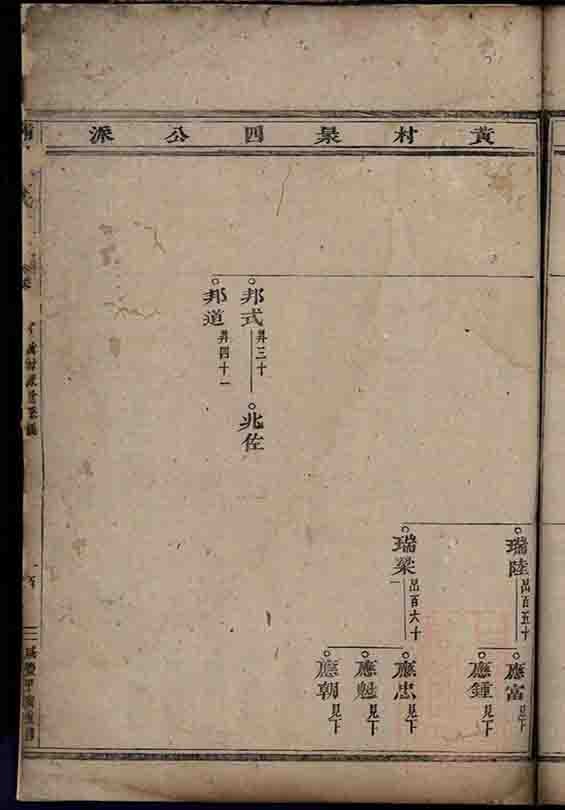 黃村景四公派
瑞陸 岀百五十
應富 見下
應鍾 見下
瑞梁 岀百六十一
應忠 見下
應魁 見下
應朝 見下
邦式 昇三十
兆佐
邦道 昇四十一